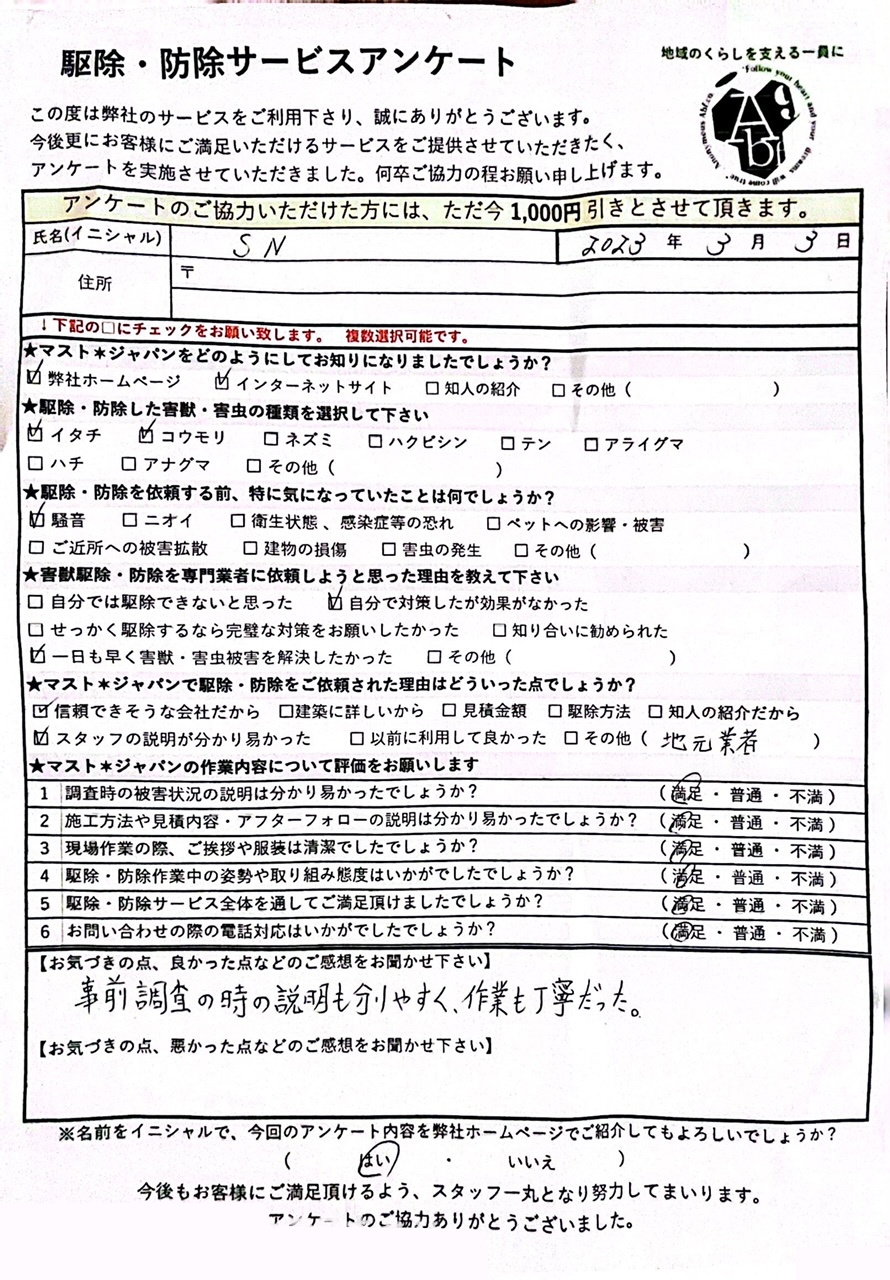 駆除・防除サービスアンケート
地域のくらしを支える一員に
Follow your heart and your dreams will come true
Ag
Abf
この度は弊社のサービスをご利用下さり、誠にありがとうございます。
今後更にお客様にご満足いただけるサービスをご提供させていただきたく、
アンケートを実施させていただきました。何卒ご協力の程お願い申し上げます。
アンケートのご協力いただけた方には、ただ今1,000円引きとさせて頂きます。
氏名(イニシャル) SN 2023 年 3 月 3 日
住所 〒
↓下記の□にチェックをお願い致します。 複数選択可能です。
★マスト＊ジャパンをどのようにしてお知りになりましたでしょうか?
☑弊社ホームページ ☑インターネットサイト □知人の紹介 □その他( )
★駆除・防除した害獣・害虫の種類を選択して下さい
☑イタチ ☑コウモリ □ネズミ □ハクビシン □テン □アライグマ
□ハチ □アナグマ □その他( )
★駆除・防除を依頼する前、特に気になっていたことは何でしょうか?
☑騒音 □ニオイ □衛生状態、感染症等の恐れ □ペットへの影響・被害
□ご近所への被害拡散 □建物の損傷 □害虫の発生 □その他( )
★害獣駆除・防除を専門業者に依頼しようと思った理由を教えて下さい
□自分では駆除できないと思った ☑自分で対策したが効果がなかった
□せっかく駆除するなら完璧な対策をお願いしたかった □知り合いに勧められた
☑一日も早く害獣・害虫被害を解決したかった □その他( )
★マスト＊ジャパンで駆除・防除をご依頼された理由はどういった点でしょうか?
☑信頼できそうな会社だから □建築に詳しいから □見積金額 □駆除方法 □知人の紹介だから
☑スタッフの説明が分かり易かった □以前に利用して良かった □その他( 地元業者 )
★マスト＊ジャパンの作業内容について評価をお願いします
1 調査時の被害状況の説明は分かり易かったでしょうか? (満足・普通・不満)
2 施工方法や見積内容・アフターフォローの説明は分かり易かったでしょうか? (満足・普通・不満)
3 現場作業の際、ご挨拶や服装は清潔でしたでしょうか? (満足・普通・不満)
4 駆除・防除作業中の姿勢や取り組み態度はいかがでしたでしょうか? (満足・普通・不満)
5 駆除・防除サービス全体を通してご満足頂けましたでしょうか? (満足・普通・不満)
6 お問い合わせの際の電話対応はいかがでしたでしょうか? (満足・普通・不満)
【お気づきの点、良かった点などのご感想をお聞かせ下さい】
事前調査の時の説明も分りやすく、作業も丁寧だった。
【お気づきの点、悪かった点などのご感想をお聞かせ下さい】
※名前をイニシャルで、今回のアンケート内容を弊社ホームページでご紹介してもよろしいでしょうか?
( はい ・ いいえ )
今後もお客様にご満足頂けるよう、スタッフ一丸となり努力してまいります。
アンケートのご協力ありがとうございました。